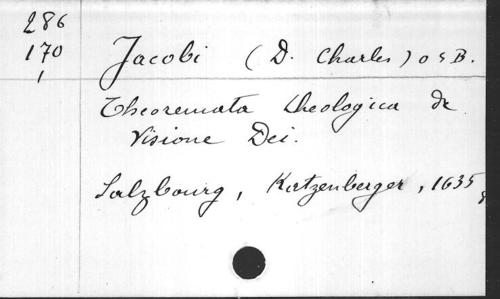 286
170
1
Jacobi (D. Charles) OSB.
Theoremata theologica de
Visione Dei.
Salzbourg, Katzenberger, 1635,